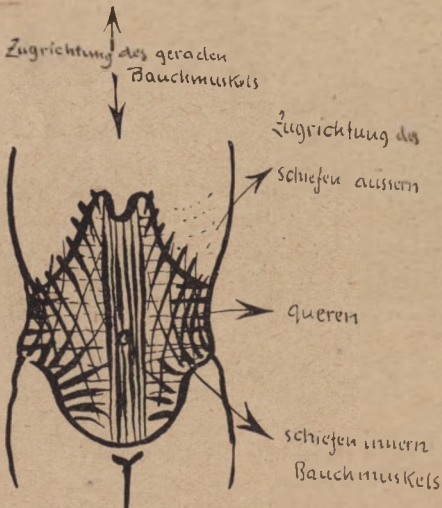 Zugrichtung des geraden
Bauchmuskels
Zugrichtung des
schiefen äussern
queren
schiefen innern
Bauchmuskels